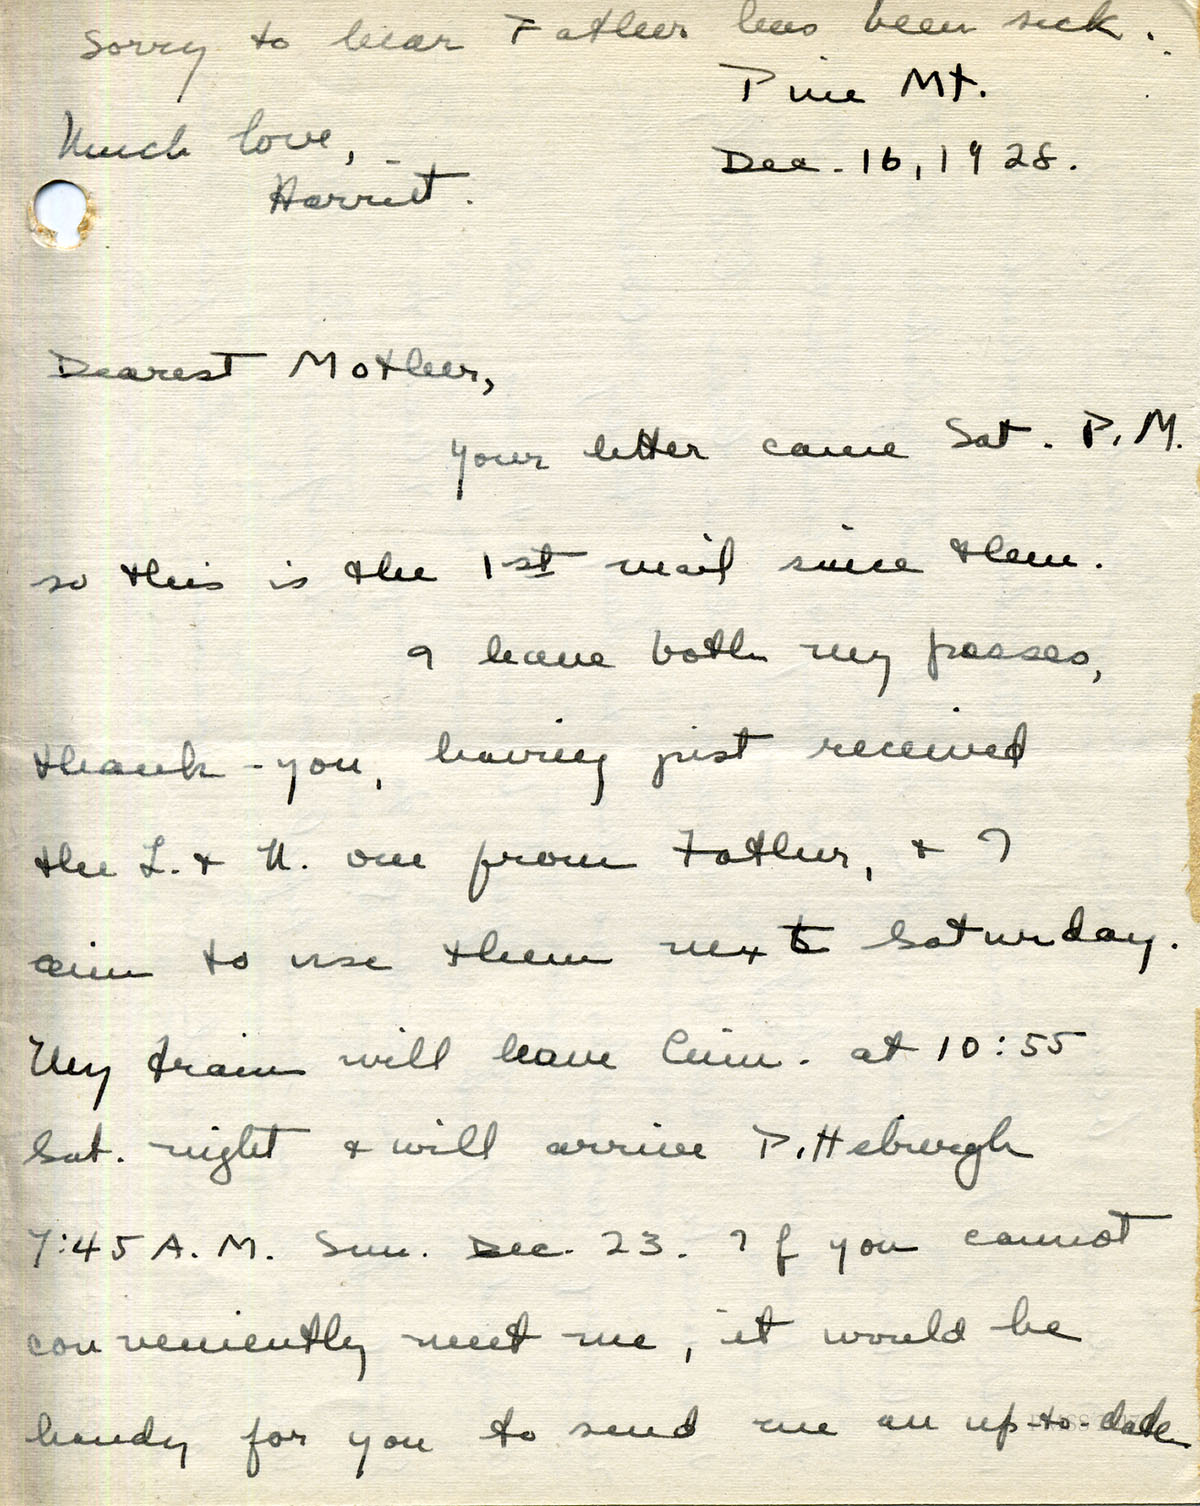 Sorry to hear Father has been sick.
Pine Mt.
Much love,
Dec. 16, 1928.
Harriet.
Dearest Mother,
Your letter came Sat. P.M.
so this is the 1st mail since then.
I have both my passes,
thank-you, having just received
the L. & N. one from Father, & I
aim to use them next Saturday.
My train will leave Cinn. at 10:55
Sat. night & will arrive Pittsburgh
7:45 A.M. Sun. Dec. 23. If you cannot
conveniently meet me, it would be
handy for you to send me an up-to-date